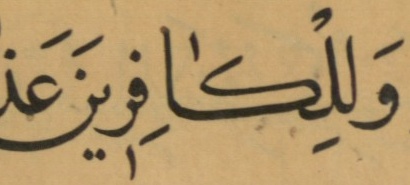 وَلِلْكَافِرِينَ عَذ